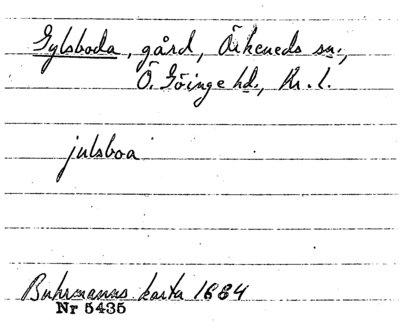 Gylsboda, gård, Örkeneds sn.,
Ö. Göinge hd., Kr. l.
julsboa
Buhrmanns karta 1684
Nr 5435